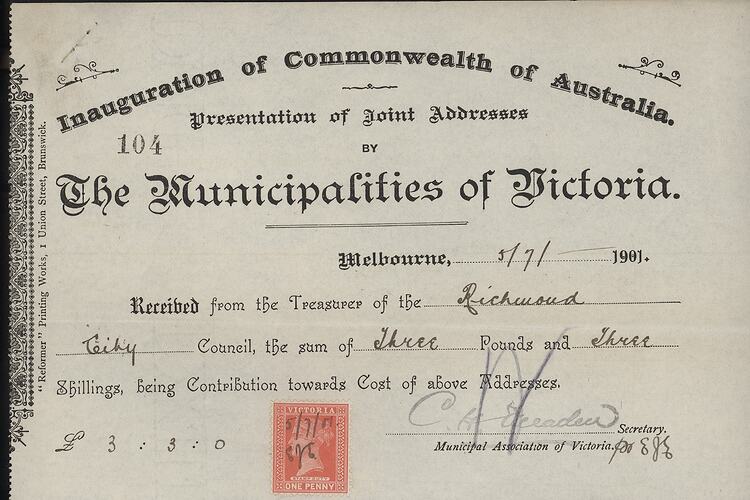 Inauguration of Commonwealth of Australia.
Presentation of Joint Addresses
104
BY
The Municipalities of Victoria.
Melbourne, 5/7/ 1901.
Received from the Treasurer of the Richmond
City Council, the sum of Three Pounds and Three
Shillings, being Contribution towards Cost of above Addresses.
£ 3 : 3 : 0
VICTORIA
5/7/01
STAMP DUTY
ONE PENNY
Secretary.
Municipal Association of Victoria.
"Reformer" Printing Works, 1 Union Street, Brunswick.